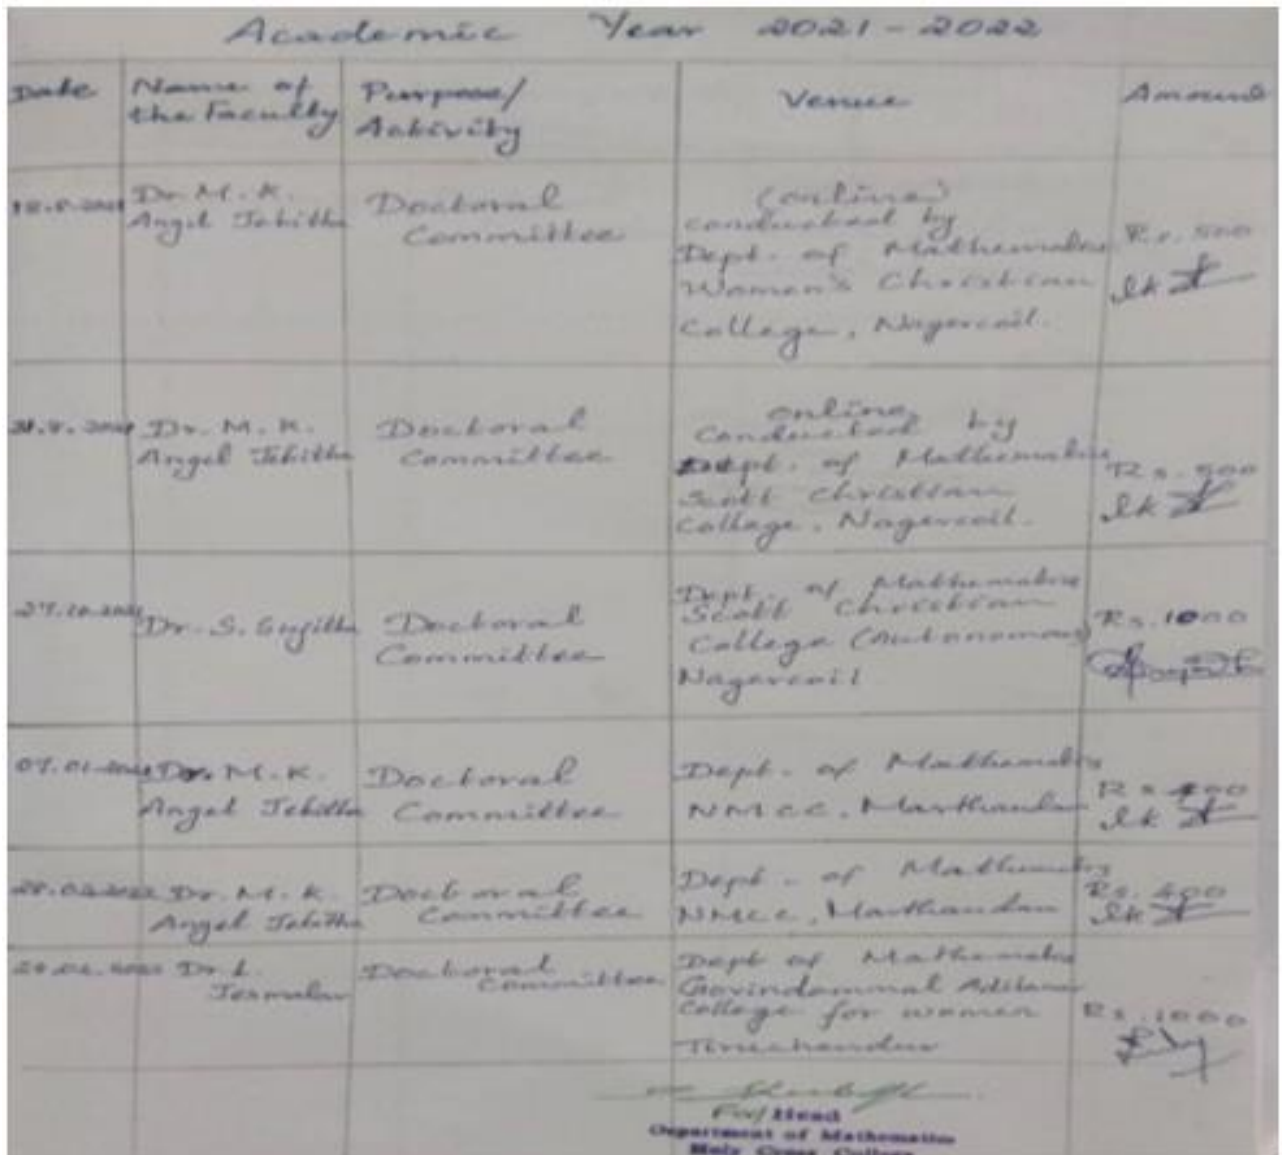 Academic Year 2021-2022
Date
Name of
the Faculty
Purpose/
Activity
Venue
Amount
Dr. M. K.
Angel Jebitha
Doctoral
Committee
(online)
conducted by
Dept. of Mathematics
Women's Christian
College, Nagercoil.
Rs. 500
Dr. M. K.
Angel Jebitha
Doctoral
Committee
online
Conducted by
Dept. of Mathematics
Scott Christian
College, Nagercoil.
Rs. 500
27.10.2021
Dr. S. Sujitha
Doctoral
Committee
Dept. of Mathematics
Scott Christian
College (Autonomous)
Nagercoil
Rs. 1000
07.01.2022
Dr. M. K.
Angel Jebitha
Doctoral
Committee
Dept. of Mathematics
NMCC, Marthandam
Rs.
Dr. M. K.
Angel Jebitha
Doctoral
Committee
Dept. of Mathematics
NMCC, Marthandam
Rs. 400
Dr. L.
Jesmalar
Doctoral
Committee
Dept of Mathematics
Govindammal Aditanar
College for women
Tiruchendur
Rs. 1000
For/Head
Department of Mathematics
Holy Cross College